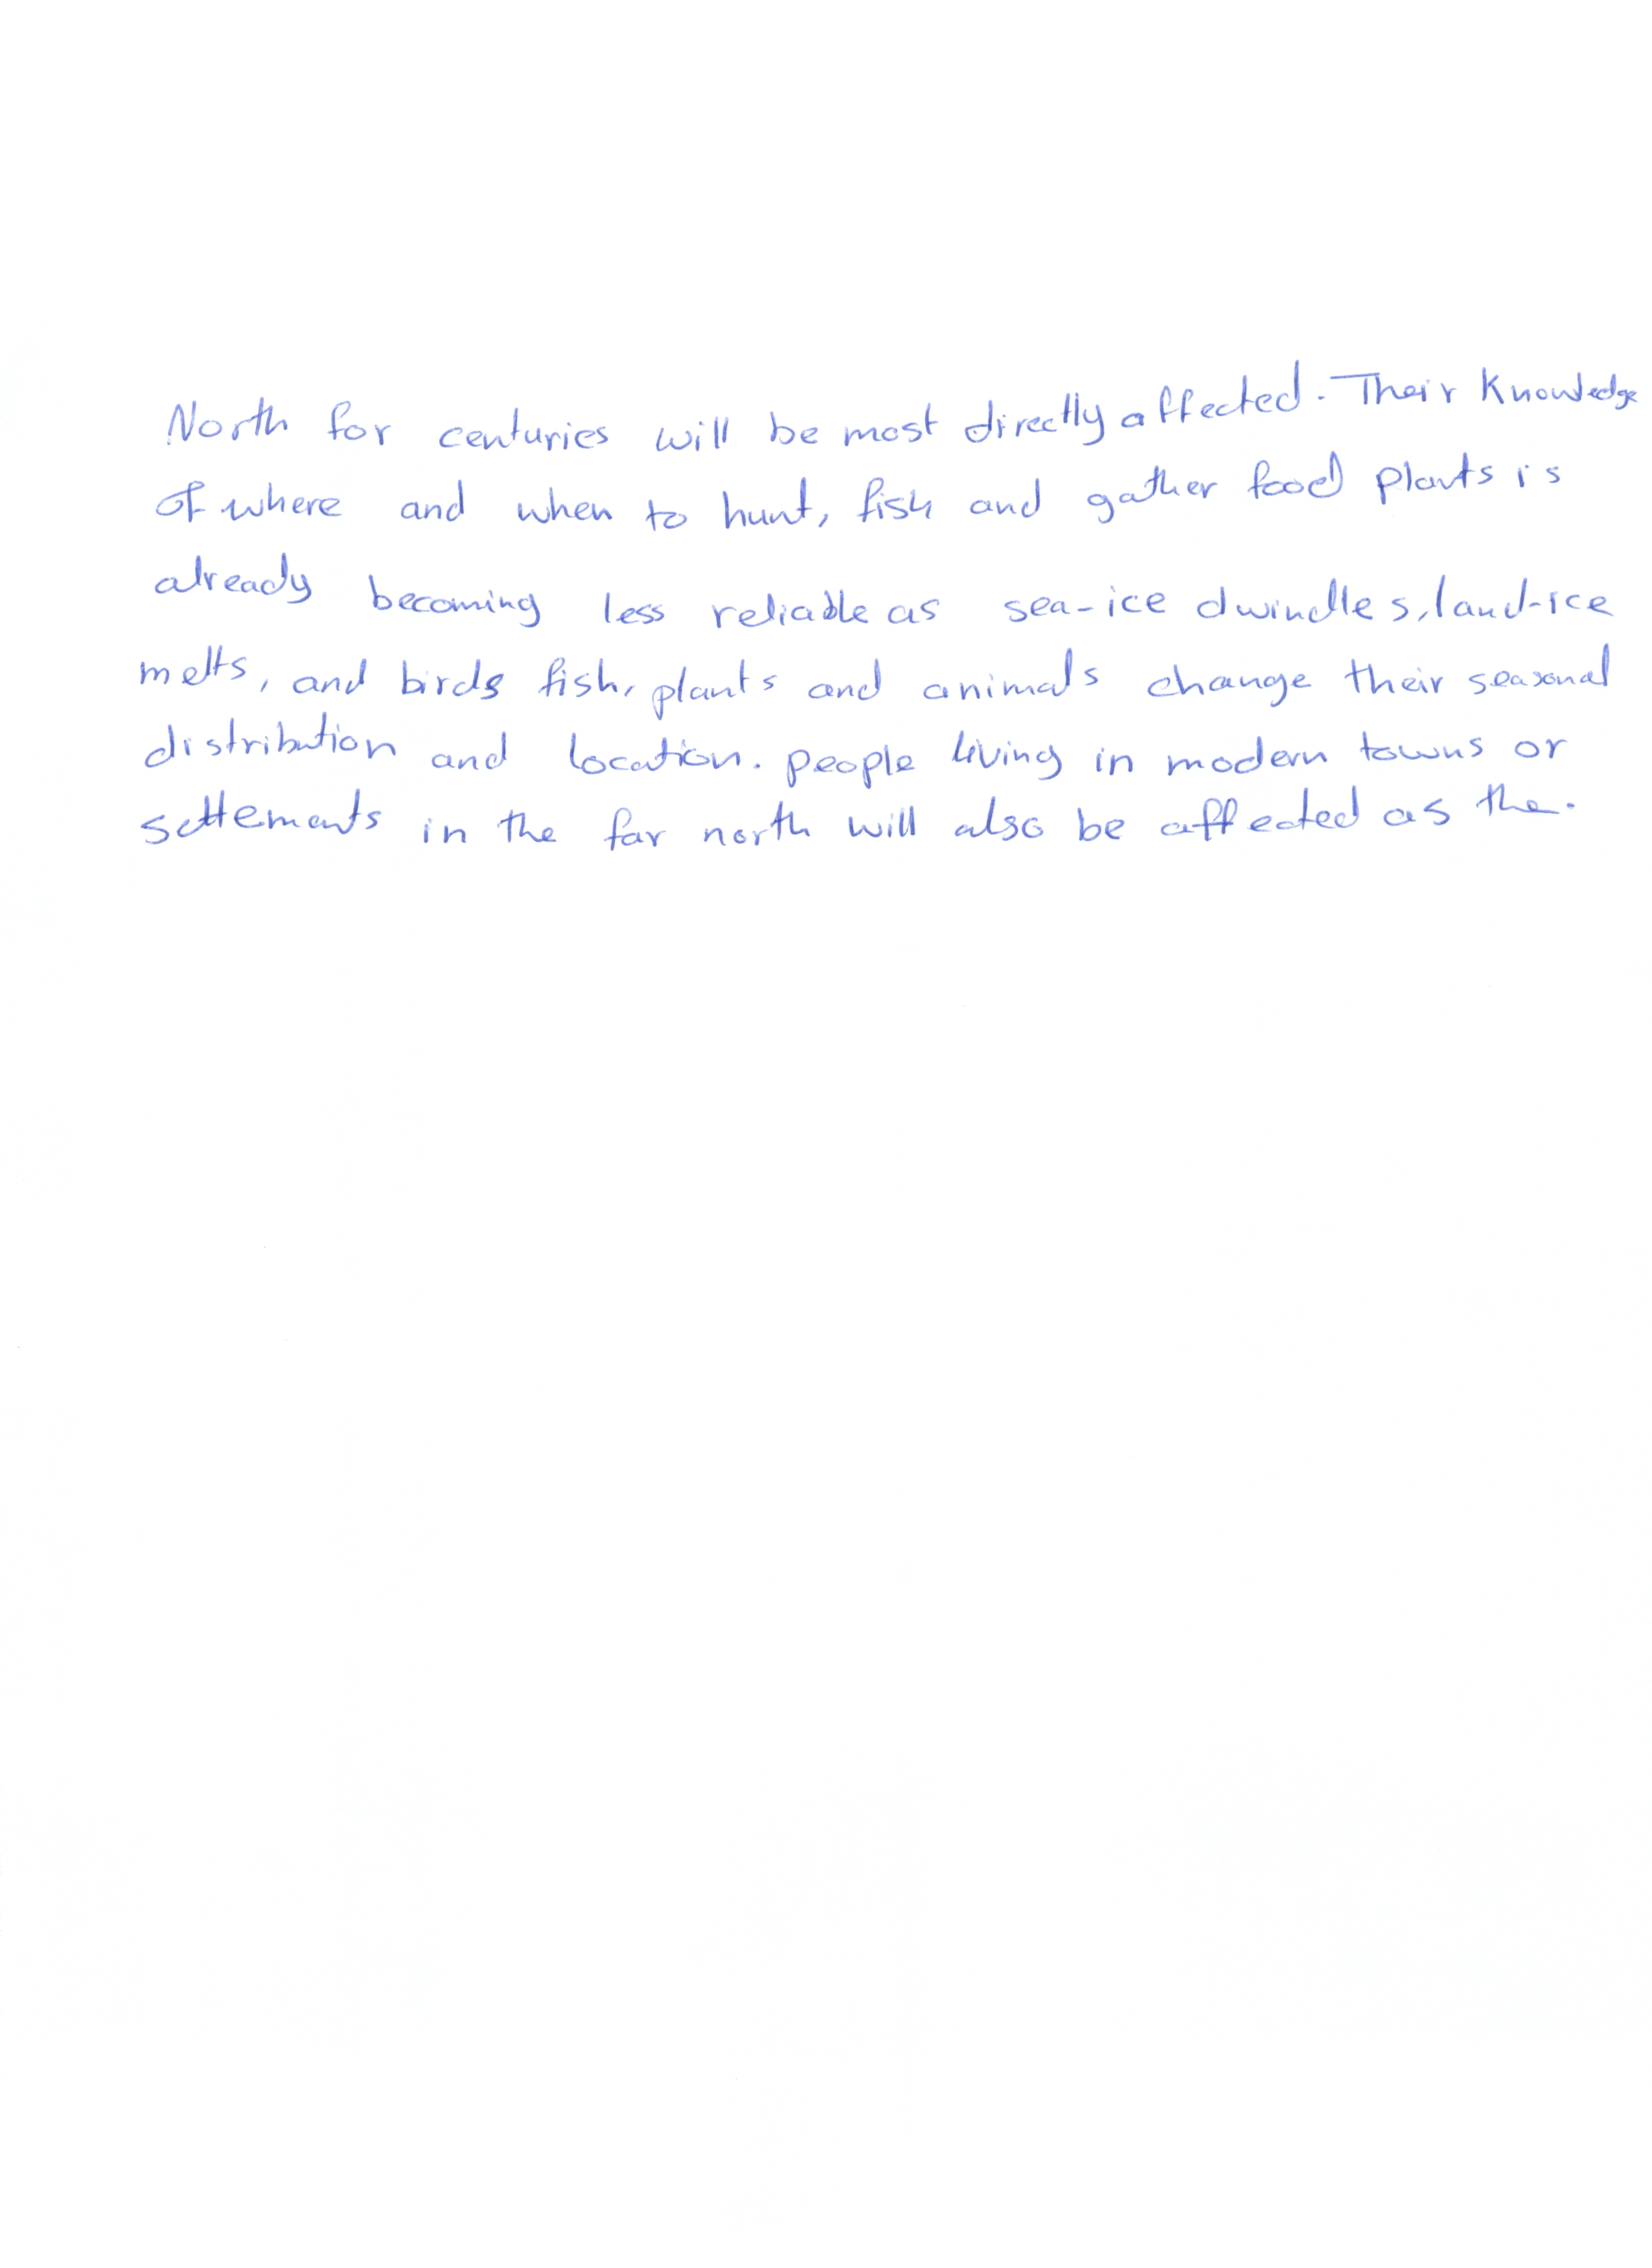 North for centuries will be most directly affected. Their Knowledge
of where and when to hunt, fish and gather food plants is
already becoming less reliable as sea-ice dwindles, land-ice
melts, and birds fish, plants and animals change their seasonal
distribution and location. people living in modern towns or
settements in the far north will also be affected as the.